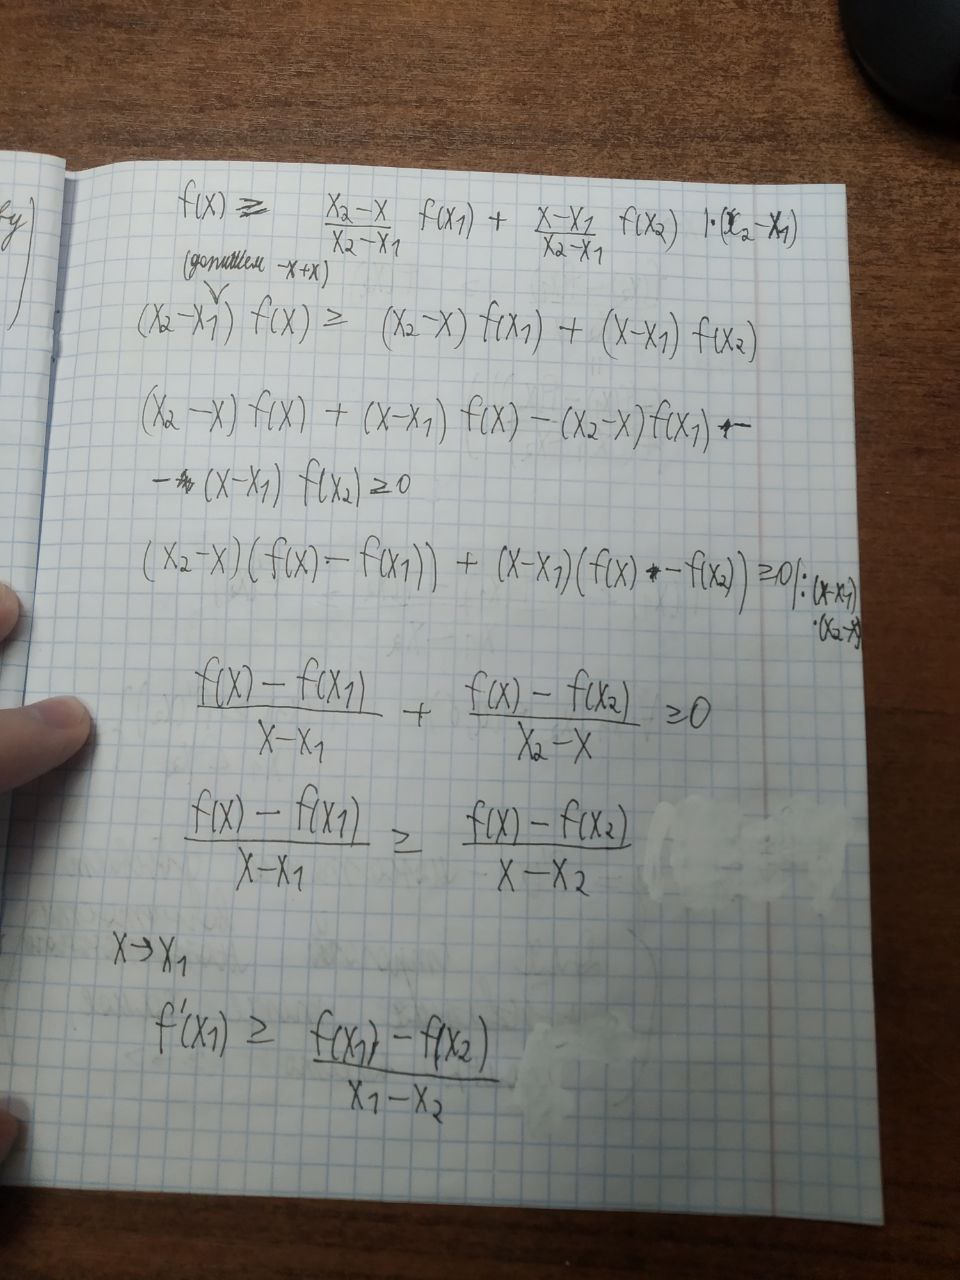 ву)
f(x) ≥ \frac{x_2-x}{x_2-x_1} f(x_1) + \frac{x-x_1}{x_2-x_1} f(x_2) |·(x_2-x_1)
(допишем -x+x)
(x_2-x_1) f(x) ≥ (x_2-x) f(x_1) + (x-x_1) f(x_2)
(x_2-x) f(x) + (x-x_1) f(x) - (x_2-x) f(x_1) -
- (x-x_1) f(x_2) ≥ 0
(x_2-x)(f(x) - f(x_1)) + (x-x_1)(f(x) - f(x_2)) ≥ 0 |:(x-x_1)
·(x_2-x)
\frac{f(x) - f(x_1)}{x-x_1} + \frac{f(x) - f(x_2)}{x_2-x} ≥ 0
\frac{f(x) - f(x_1)}{x-x_1} ≥ \frac{f(x) - f(x_2)}{x-x_2}
x→x_1
f'(x_1) ≥ \frac{f(x_1) - f(x_2)}{x_1-x_2}